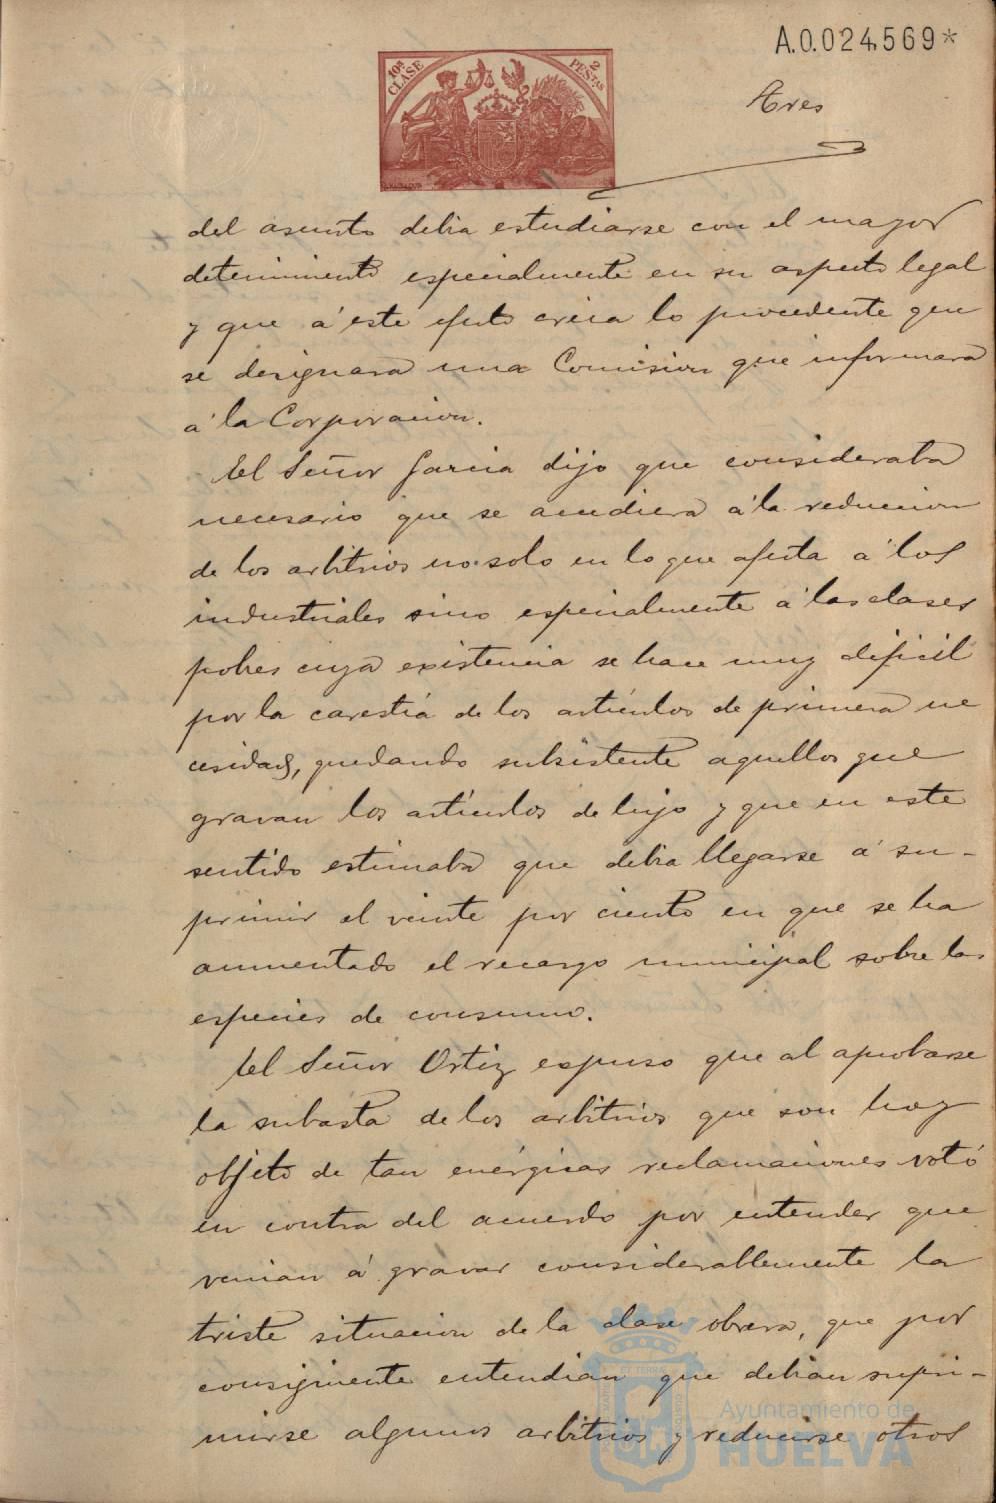 A.0.024,569*
10ª CLASE
2 PESTAS
Tres
del asunto debia estudiarse con el mayor
detenimiento especialmente en su aspecto legal
y que á este efecto creia lo procedente que
se designara una Comision que informara
á la Corporacion.
El Señor Garcia dijo que consideraba
necesario que se acudiera á la reduccion
de los arbitrios no solo en lo que afecta á los
industriales sino especialmente á las clases
pobres cuya existencia se hace muy dificil
por la carestia de los artículos de primera ne
cesidad, quedando subsistente aquellos que
gravan los artículos de lujo y que en este
sentido estimaba que debia llegarse á su-
primir el veinte por ciento en que se ha
aumentado el recargo municipal sobre las
especies de consumo.
El Señor Ortiz expuso que al aprobarse
la subasta de los arbitrios que son hoy
objeto de tan enérgicas reclamaciones votó
en contra del acuerdo por entender que
venian á gravar considerablemente la
triste situacion de la clase obrera, que por
consiguiente entendian que debian supri-
mirse algunos arbitrios y reducirse otros
Ayuntamiento de
HUELVA